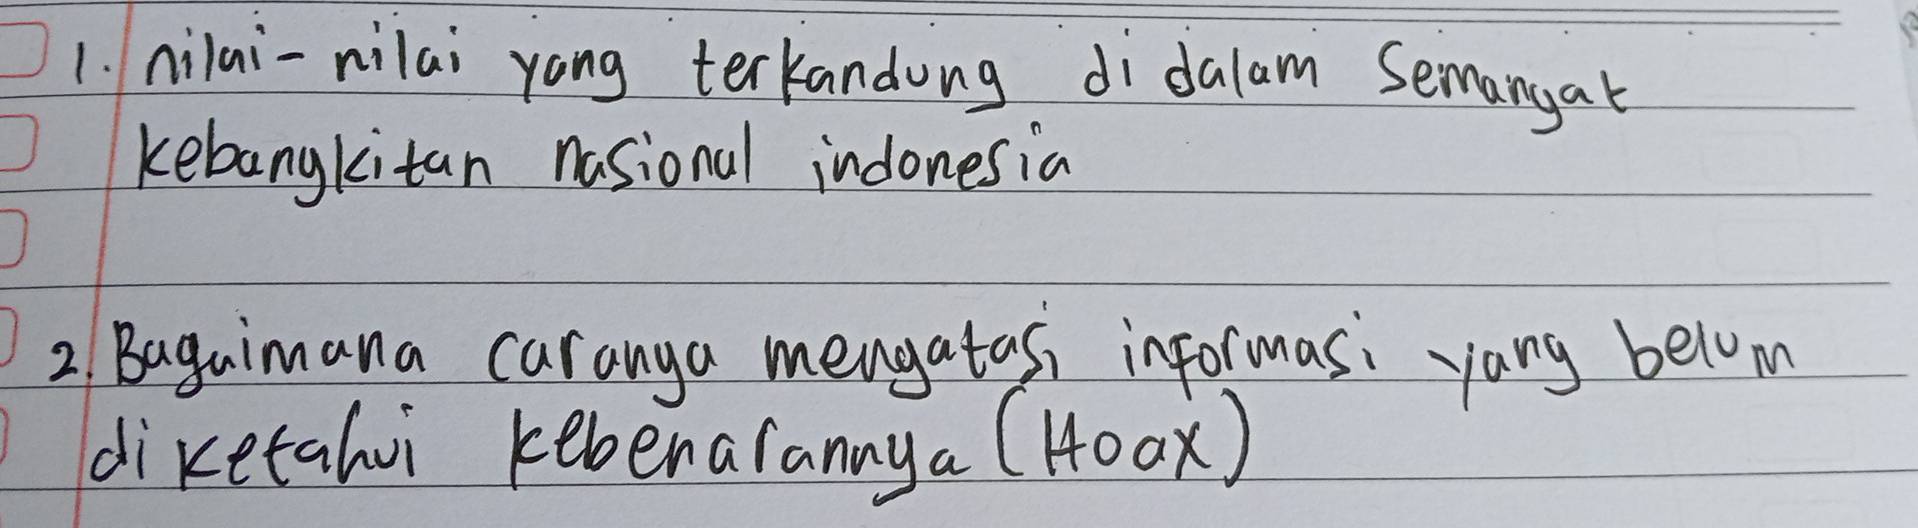 1. nilai-nilai yang terkandung di dalam Semangat
kebangkitan nasional indonesia
2. Bagaimana caranya mengatasi informasi yang belum
diketahui kebenarannya (Hoax)